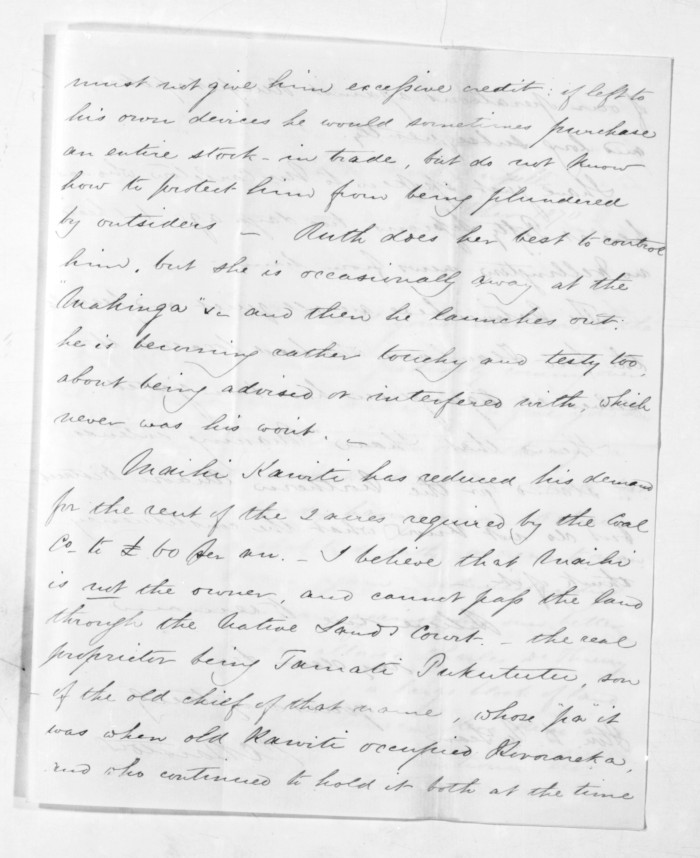 must not give him excessive credit: if left to
his own devices he would sometimes purchase
an entire stock-in trade, but do not know
how to protect him from being plundered
by outsiders — Ruth does her best to control
him, but she is occasionally away at the
"Mahinga" &c and then he launches out:
he is becoming rather touchy and testy too,
about being advised or interfered with, which
never was his wont. —
Maihi Kawiti has reduced his demand
for the rent of the 2 acres required by the Coal
Co. to £60 per an. — I believe that Maihi
is not the owner, and cannot pass the land
through the Native Lands Court. — the real
proprietor being Tamati Pukututu, son
of the old chief of that name, whose "pa" it
was when old Kawiti occupied
and who continued to hold it both at the time